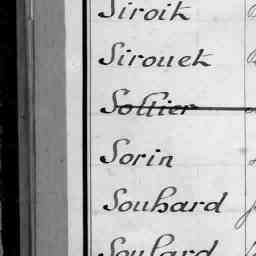 Siroit
Sirouet
Soltier
Sorin
Souhard
Soulard